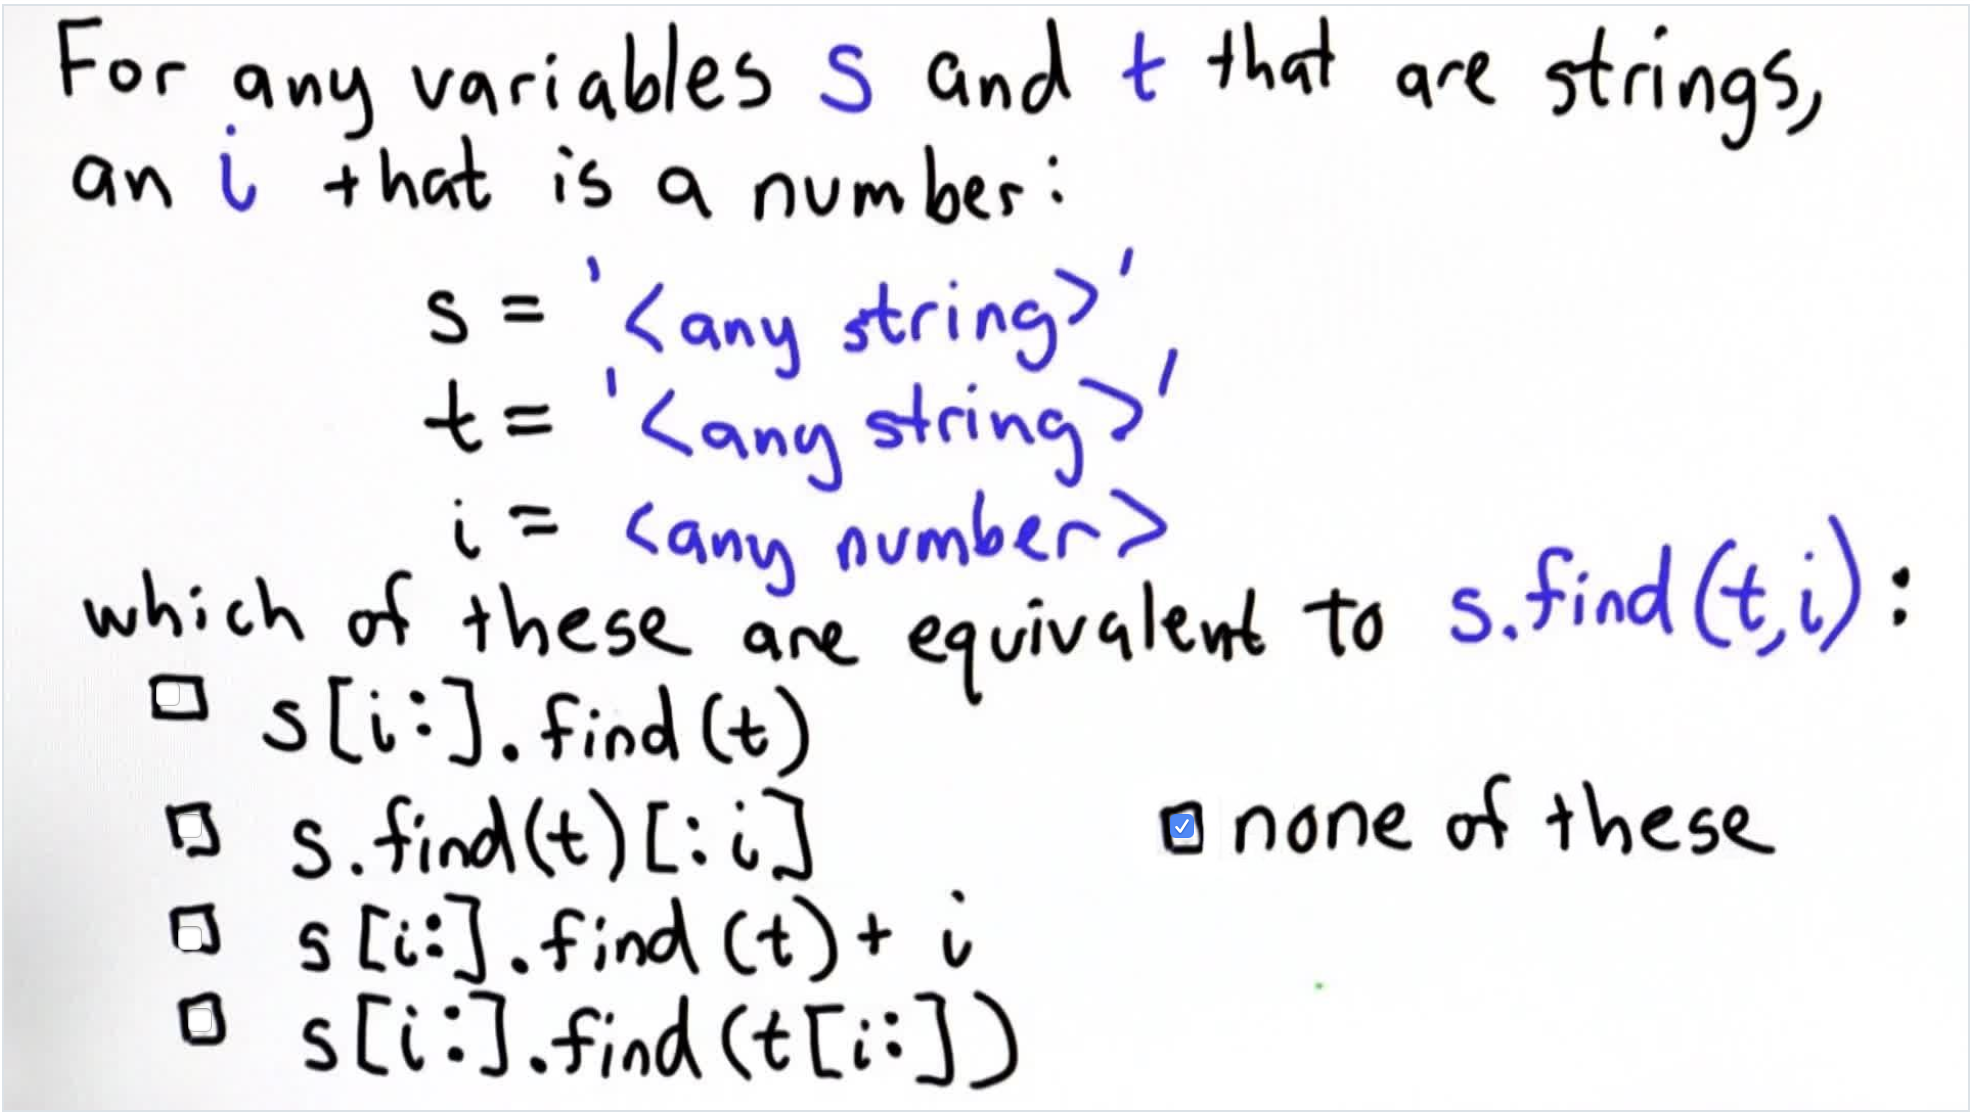 For any variables s and t that are strings,
an i that is a number:
s = '<any string>'
t = '<any string>'
i = <any number>
which of these are equivalent to s.find(t,i):
s[i:].find(t)
s.find(t)[:i]
none of these
s[i:].find(t) + i
s[i:].find(t[i:])